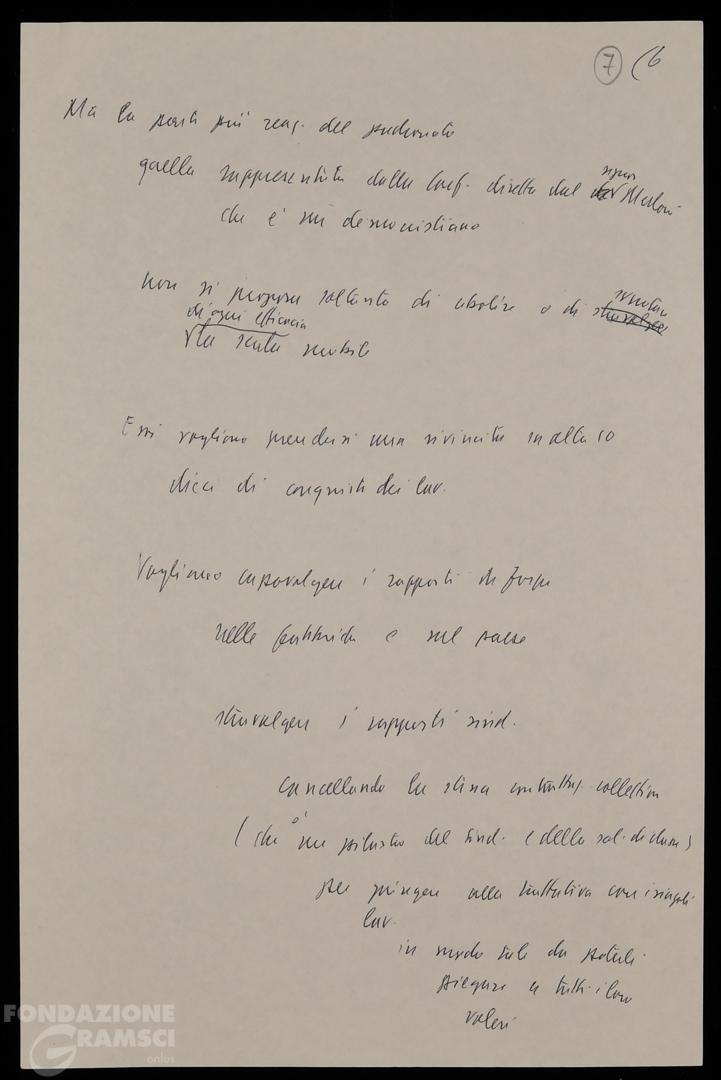 7 (6
Ma la parte più reaz. del padronato
quella rappresentata dalla Conf. diretta dal signor Merloni
che è un democristiano
non si propone soltanto di abolire o di svuotare
di ogni efficacia
la scala mobile
Essi vogliono prendersi una rivincita su altre 10
dieci di conquiste dei lav.
Vogliono capovolgere i rapporti di forza
nelle fabbriche e nel paese
stravolgere i rapporti sind.
cancellando la stessa contrattaz. collettiva
(che è un pilastro del sind. e della sol. di classe)
per giungere alla trattativa con i singoli
lav.
in modo tale da poterli
piegare a tutti i loro
voleri
FONDAZIONE
GRAMSCI
onlus